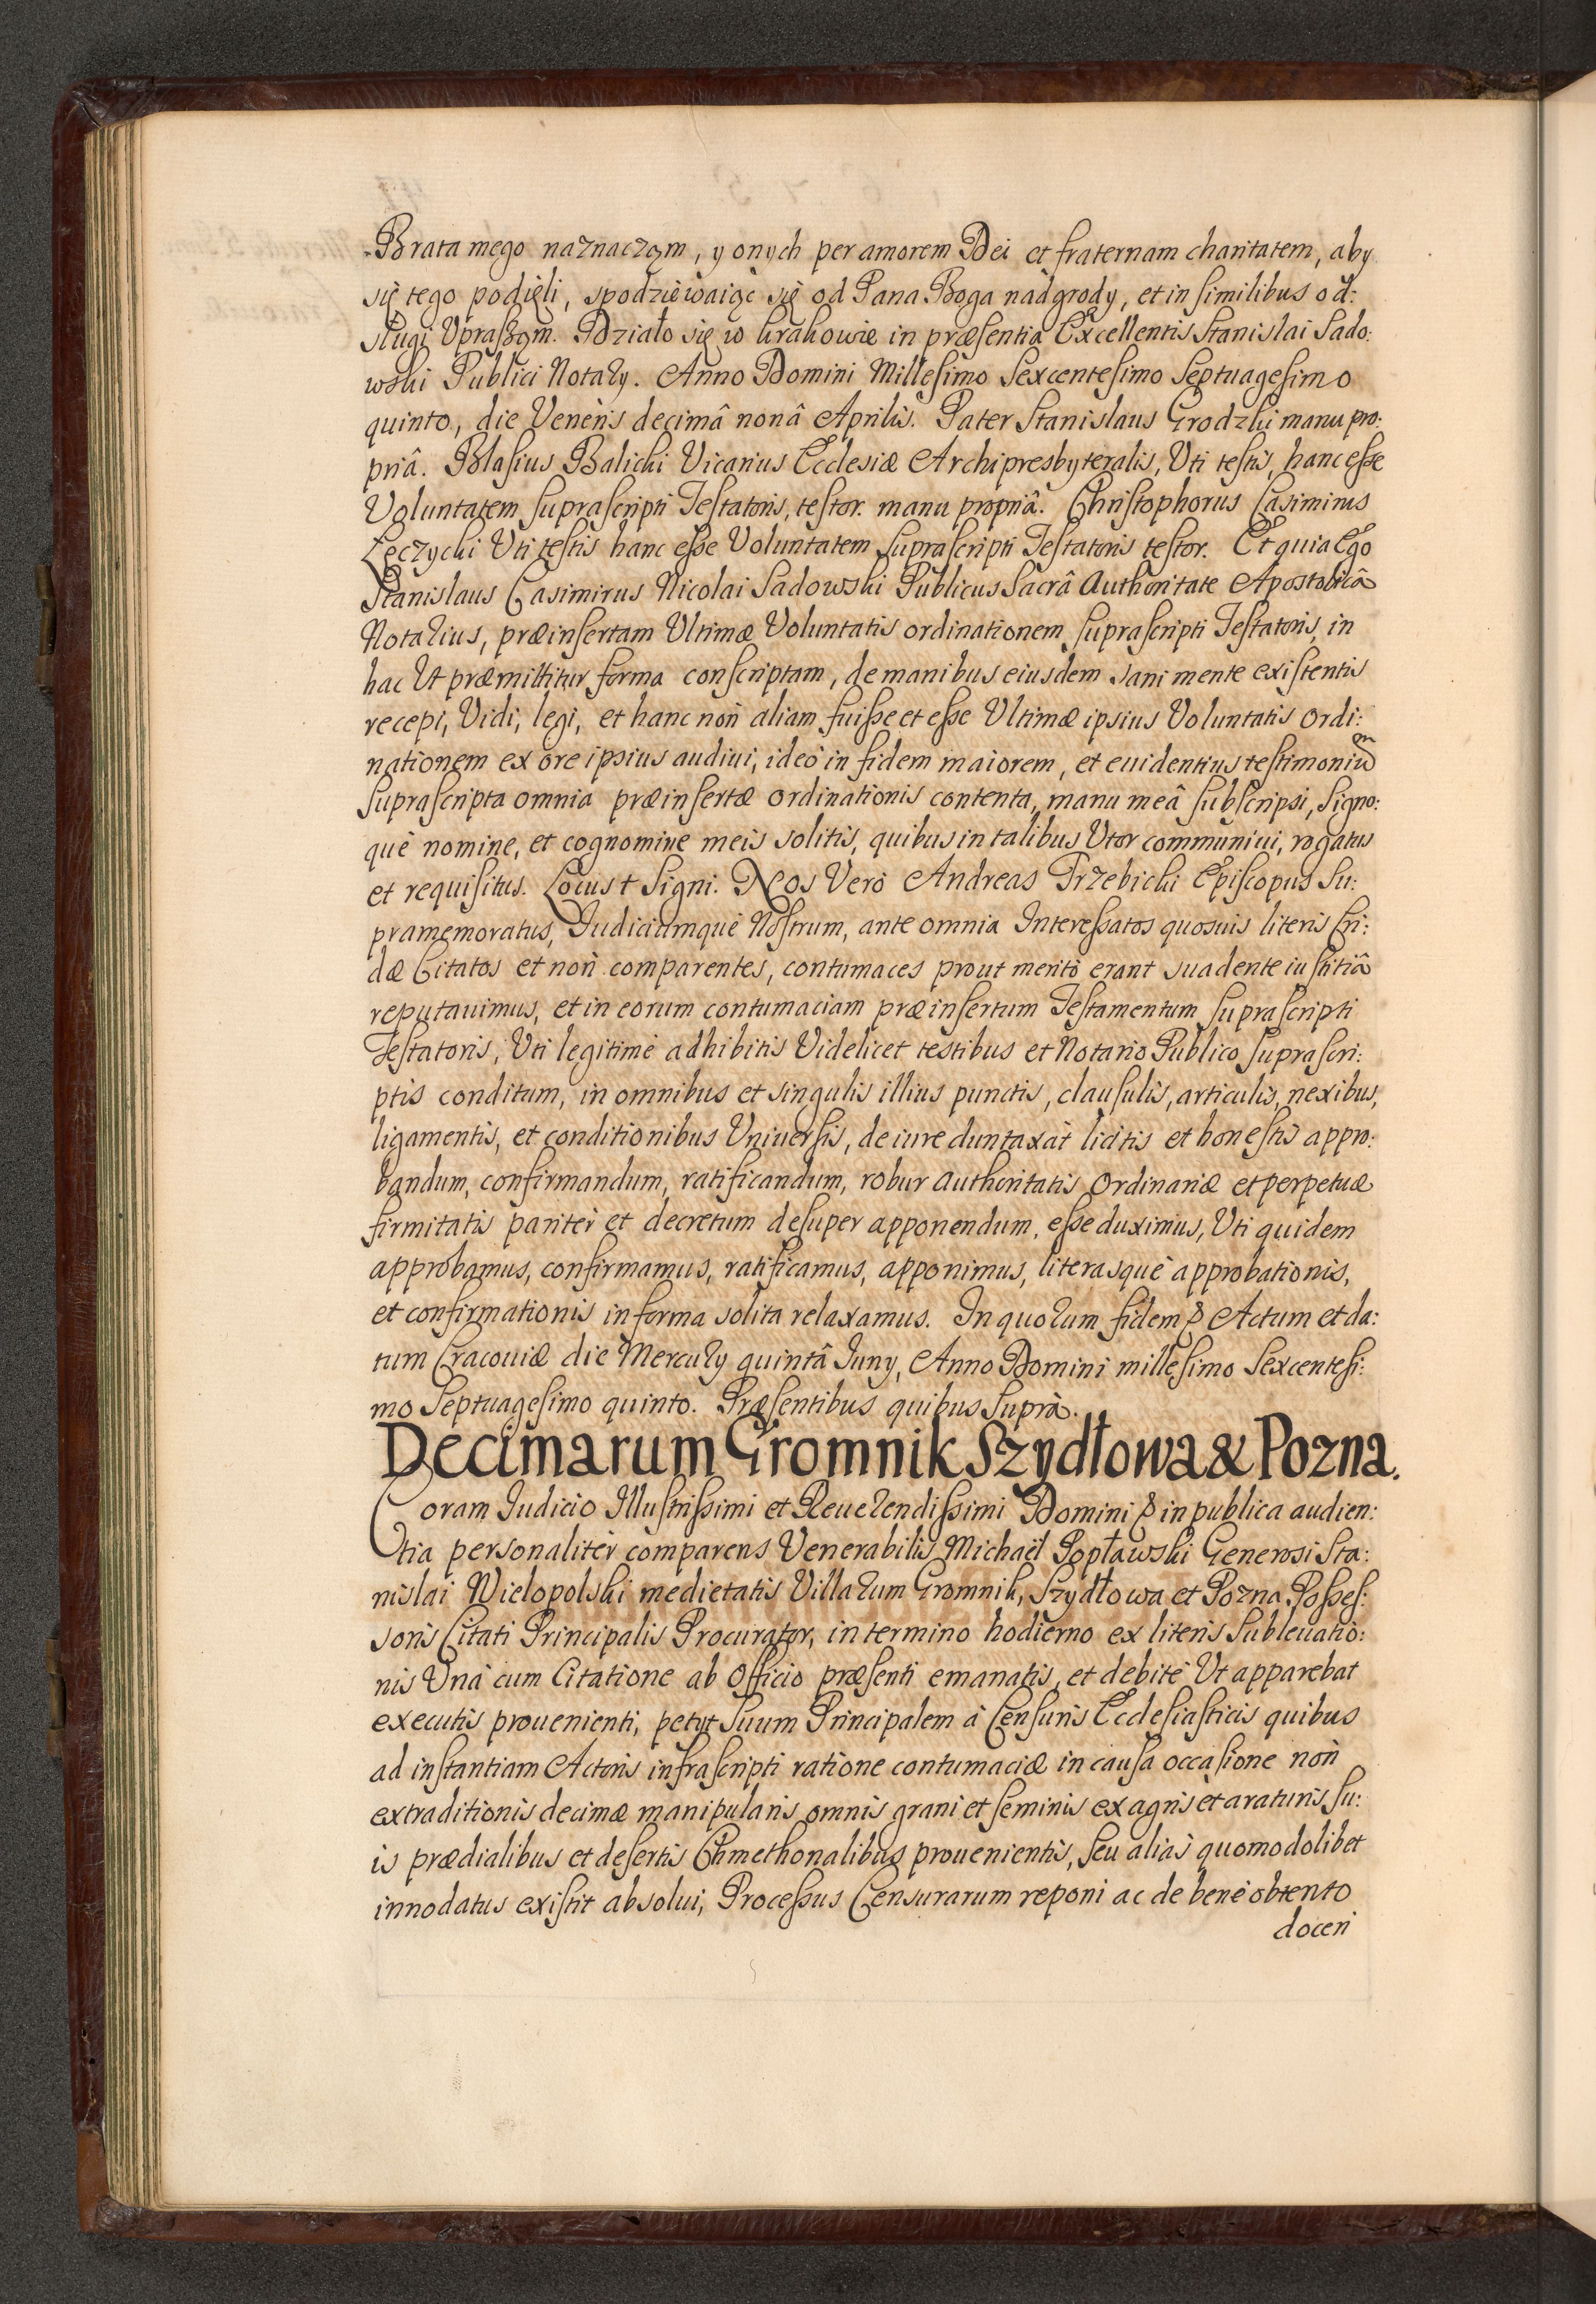 Brata mego naznaczam, y onych per amorem Dei et fraternam charitatem, aby
się tego podięli, spodziewaiąc się od Pana Boga nadgrody, et in similibus od:
sługi Upraszam. Działo się w krakowie in præsentia Excellentis Stanislai Sado:
wski Publici Notary. Anno Domini Millesimo Sexcentesimo Septuagesimo
quinto, die Veneris decimâ nonâ Aprilis. Pater Stanislaus Grodzki manu pro:
priâ. Blasius Balicki Vicarius Ecclesiæ Archipresbyteralis, Uti testis, hanc esse
Voluntatem suprascripti Testatoris, testor. manu propriâ. Christophorus Casimirus
Łęczycki Uti testis hanc esse Voluntatem suprascripti Testatoris testor. Et quia Ego
Stanislaus Casimirus Nicolai Sadowski Publicus Sacrâ Authoritate Apostolicâ
Notarius, præinsertam Ultimæ Voluntatis ordinationem suprascripti Testatoris, in
hac Ut præmittitur forma conscriptam, de manibus eiusdem sani mente existentis
recepi, Vidi, legi, et hanc non aliam fuisse et esse Ultimæ ipsius Voluntatis Ordi:
nationem ex ore ipsius audiui, ideò in fidem maiorem, et euidentius testimoniũm
suprascripta omnia præinsertæ ordinationis contenta, manu meâ subscripsi, signo:
què nomine, et cognomine meis solitis, quibus in talibus Utor communiui, rogatus
et requisitus. Locus † Signi. Nos Verò Andreas Trzebicki Episcopus Su:
pramemoratus, Judiciumquè Nostrum, ante omnia Interessatos quosuis literis Cri:
dæ Citatos et non comparentes, contumaces prout meritò erant suadente iustitiâ
reputauimus, et in eorum contumaciam præinsertum Testamentum suprascripti
Testatoris, Uti legitimè adhibitis Videlicet testibus et Notario Publico suprascri:
ptis conditum, in omnibus et singulis illius punctis, clausulis, articulis, nexibus,
ligamentis, et conditionibus Uniuersis, de iure duntaxàt licitis et honestis appro:
bandum, confirmandum, ratificandum, robur authoritatis Ordinariæ et perpetuæ
firmitatis paritèr et decretum desuper apponendum, esse duximus, Uti quidem
approbamus, confirmamus, ratificamus, apponimus, literasquè approbationis,
et confirmationis in forma solita relaxamus. In quorum fidem & Actum et da:
tum Cracouiæ die Mercury quintâ Juny, Anno Domini millesimo Sexcentesi:
mo Septuagesimo quinto. Præsentibus quibus Suprà.
Decimarum Gromnik Szydłowa & Pozna.
Coram Judicio Illustrissimi et Reuerendissimi Domini & in publica audien:
tia personalitèr comparens Venerabilis Michaël Popławski Generosi Sta:
nislai Wielopolski medietatis Villarum Gromnik, Szydłowa et Pozna Posses:
soris Citati Principalis Procurator, in termino hodierno ex literis Subleuatio:
nis Unà cum Citatione ab Officio præsenti emanatis, et debitè Ut apparebat
executis prouenienti, petyt Suum Principalem à Censuris Ecclesiasticis quibus
ad instantiam Actoris infrascripti ratione contumaciæ in causa occasione non
extraditionis decimæ manipularis omnis grani et seminis ex agris et araturis su:
is prædialibus et desertis Chmethonalibus prouenientis, seu aliàs quomodolibet
innodatus existit absolui, Processus Censurarum reponi ac de benè obtento
doceri